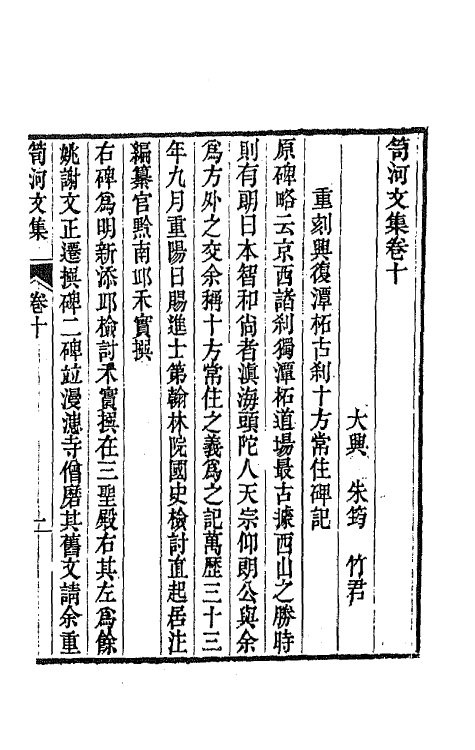 笥河文集卷十
大興 朱筠 竹君
重刻興復潭柘古刹十方常住碑記
原碑略云京西諸刹獨潭柘道場最古據西山之勝時
則有朗日本智和尙者滇海頭陀人天宗仰朗公與余
爲方外之交余稱十方常住之義爲之記萬歷三十三
年九月重陽日賜進士第翰林院國史檢討直起居注
編纂官黔南邱禾實撰
右碑爲明新添邱檢討禾實撰在三聖殿右其左爲餘
姚謝文正遷撰碑二碑竝漫漶寺僧磨其舊文請余重
笥河文集 卷十 一